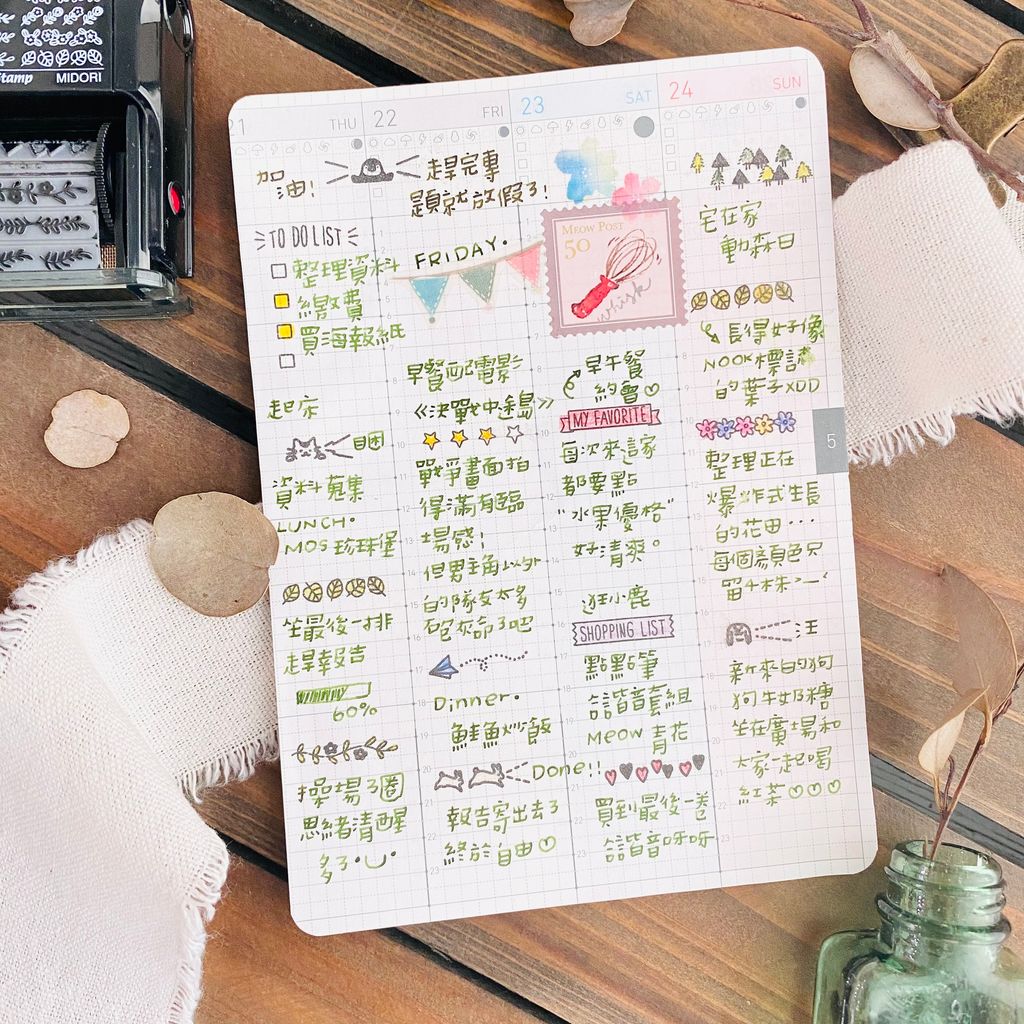 Stamp MIDORI
21 THU
加油!
TO DO LIST
整理資料
繳費
買海報紙
起床
困
資料蒐集
LUNCH.
MOS 珍珠堡
坐最後一排
趕報告
60%
操場3圈
思緒清醒
多了
22 FRI
趕完專
題就放假了!
FRIDAY.
早餐配電影
《決戰中途島》
戰爭畫面拍
得滿有臨
場感!
但男主角以外
的隊友太多
砲灰命了吧
Dinner.
鮭魚炒飯
Done!!
報告寄出去了
終於自由♡
23 SAT
MEOW POST
50
whisk
早午餐
約會♡
MY FAVORITE
每次來這家
都要點
"水果優格"
好清爽。
逛小鹿
SHOPPING LIST
點點筆
諧音套組
MEOW 青花
買到最後一卷
諧音呀呀
24 SUN
宅在家
動森日
長得好像
NOOK標誌
的葉子XDD
整理正在
爆炸式生長
的花田...
每個顏色只
留4株>-<
汪
新來的狗
狗牛奶糖
坐在廣場和
大家一起喝
紅茶♡♡♡
5